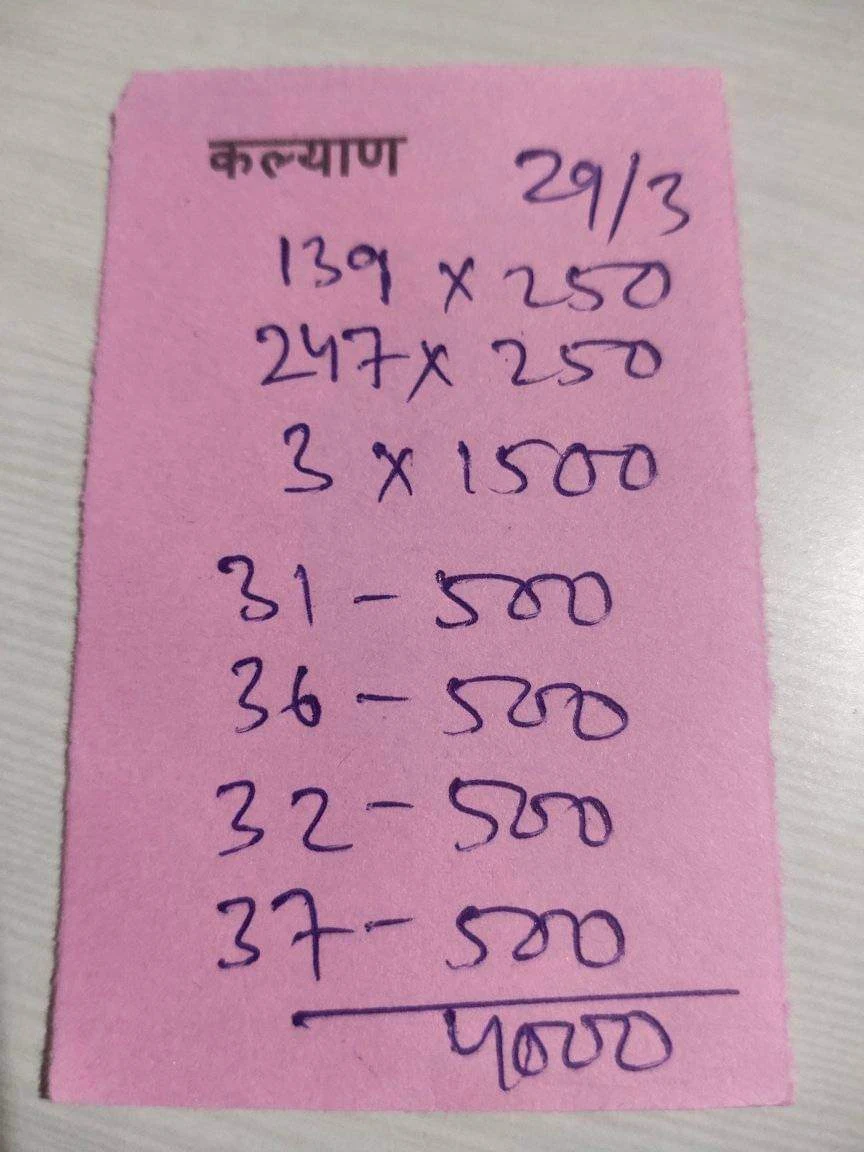 कल्याण 29/3
139 x 250
247 x 250
3 x 1500
31 - 500
36 - 500
32 - 500
37 - 500
4000